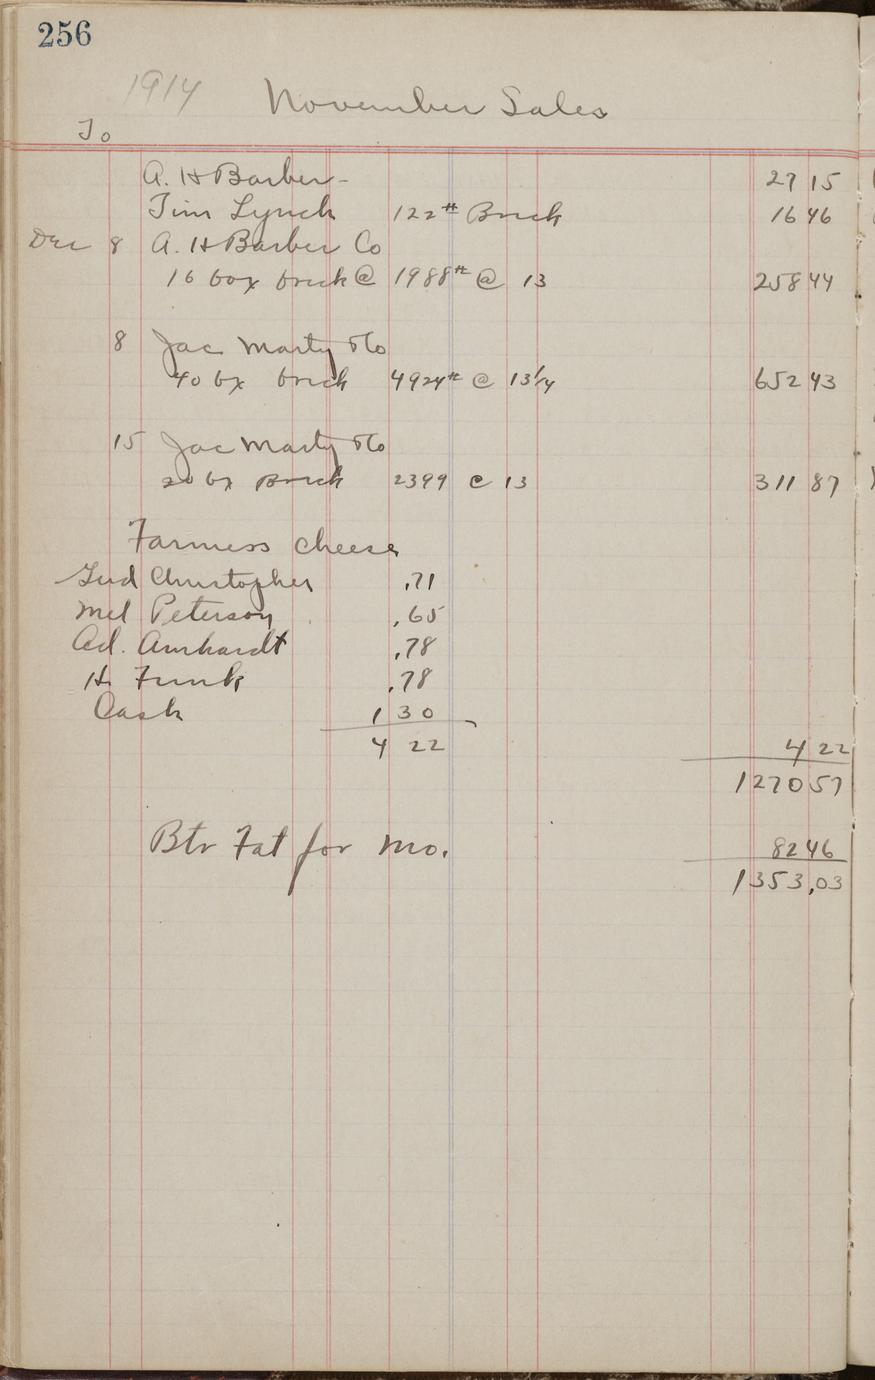 256
1914 November Sales
To
A. H Barber - 27 15
Tim Lynch 122# Brick 16 46
Dec 8 A. H Barber Co
16 box brick @ 1988# @ 13 258 44
8 Jac Marty & Co
40 bx brick 4924# @ 13 1/4 652 43
15 Jac Marty & Co
20 bx Brick 2399 @ 13 311 87
Farmers cheese
Christopher .71
Mel Peterson .65
Ad. Arnhardt .78
H. Funk .78
Cash 1 30
4 22 4 22
1270 57
Btr Fat for mo. 82 46
1353.03